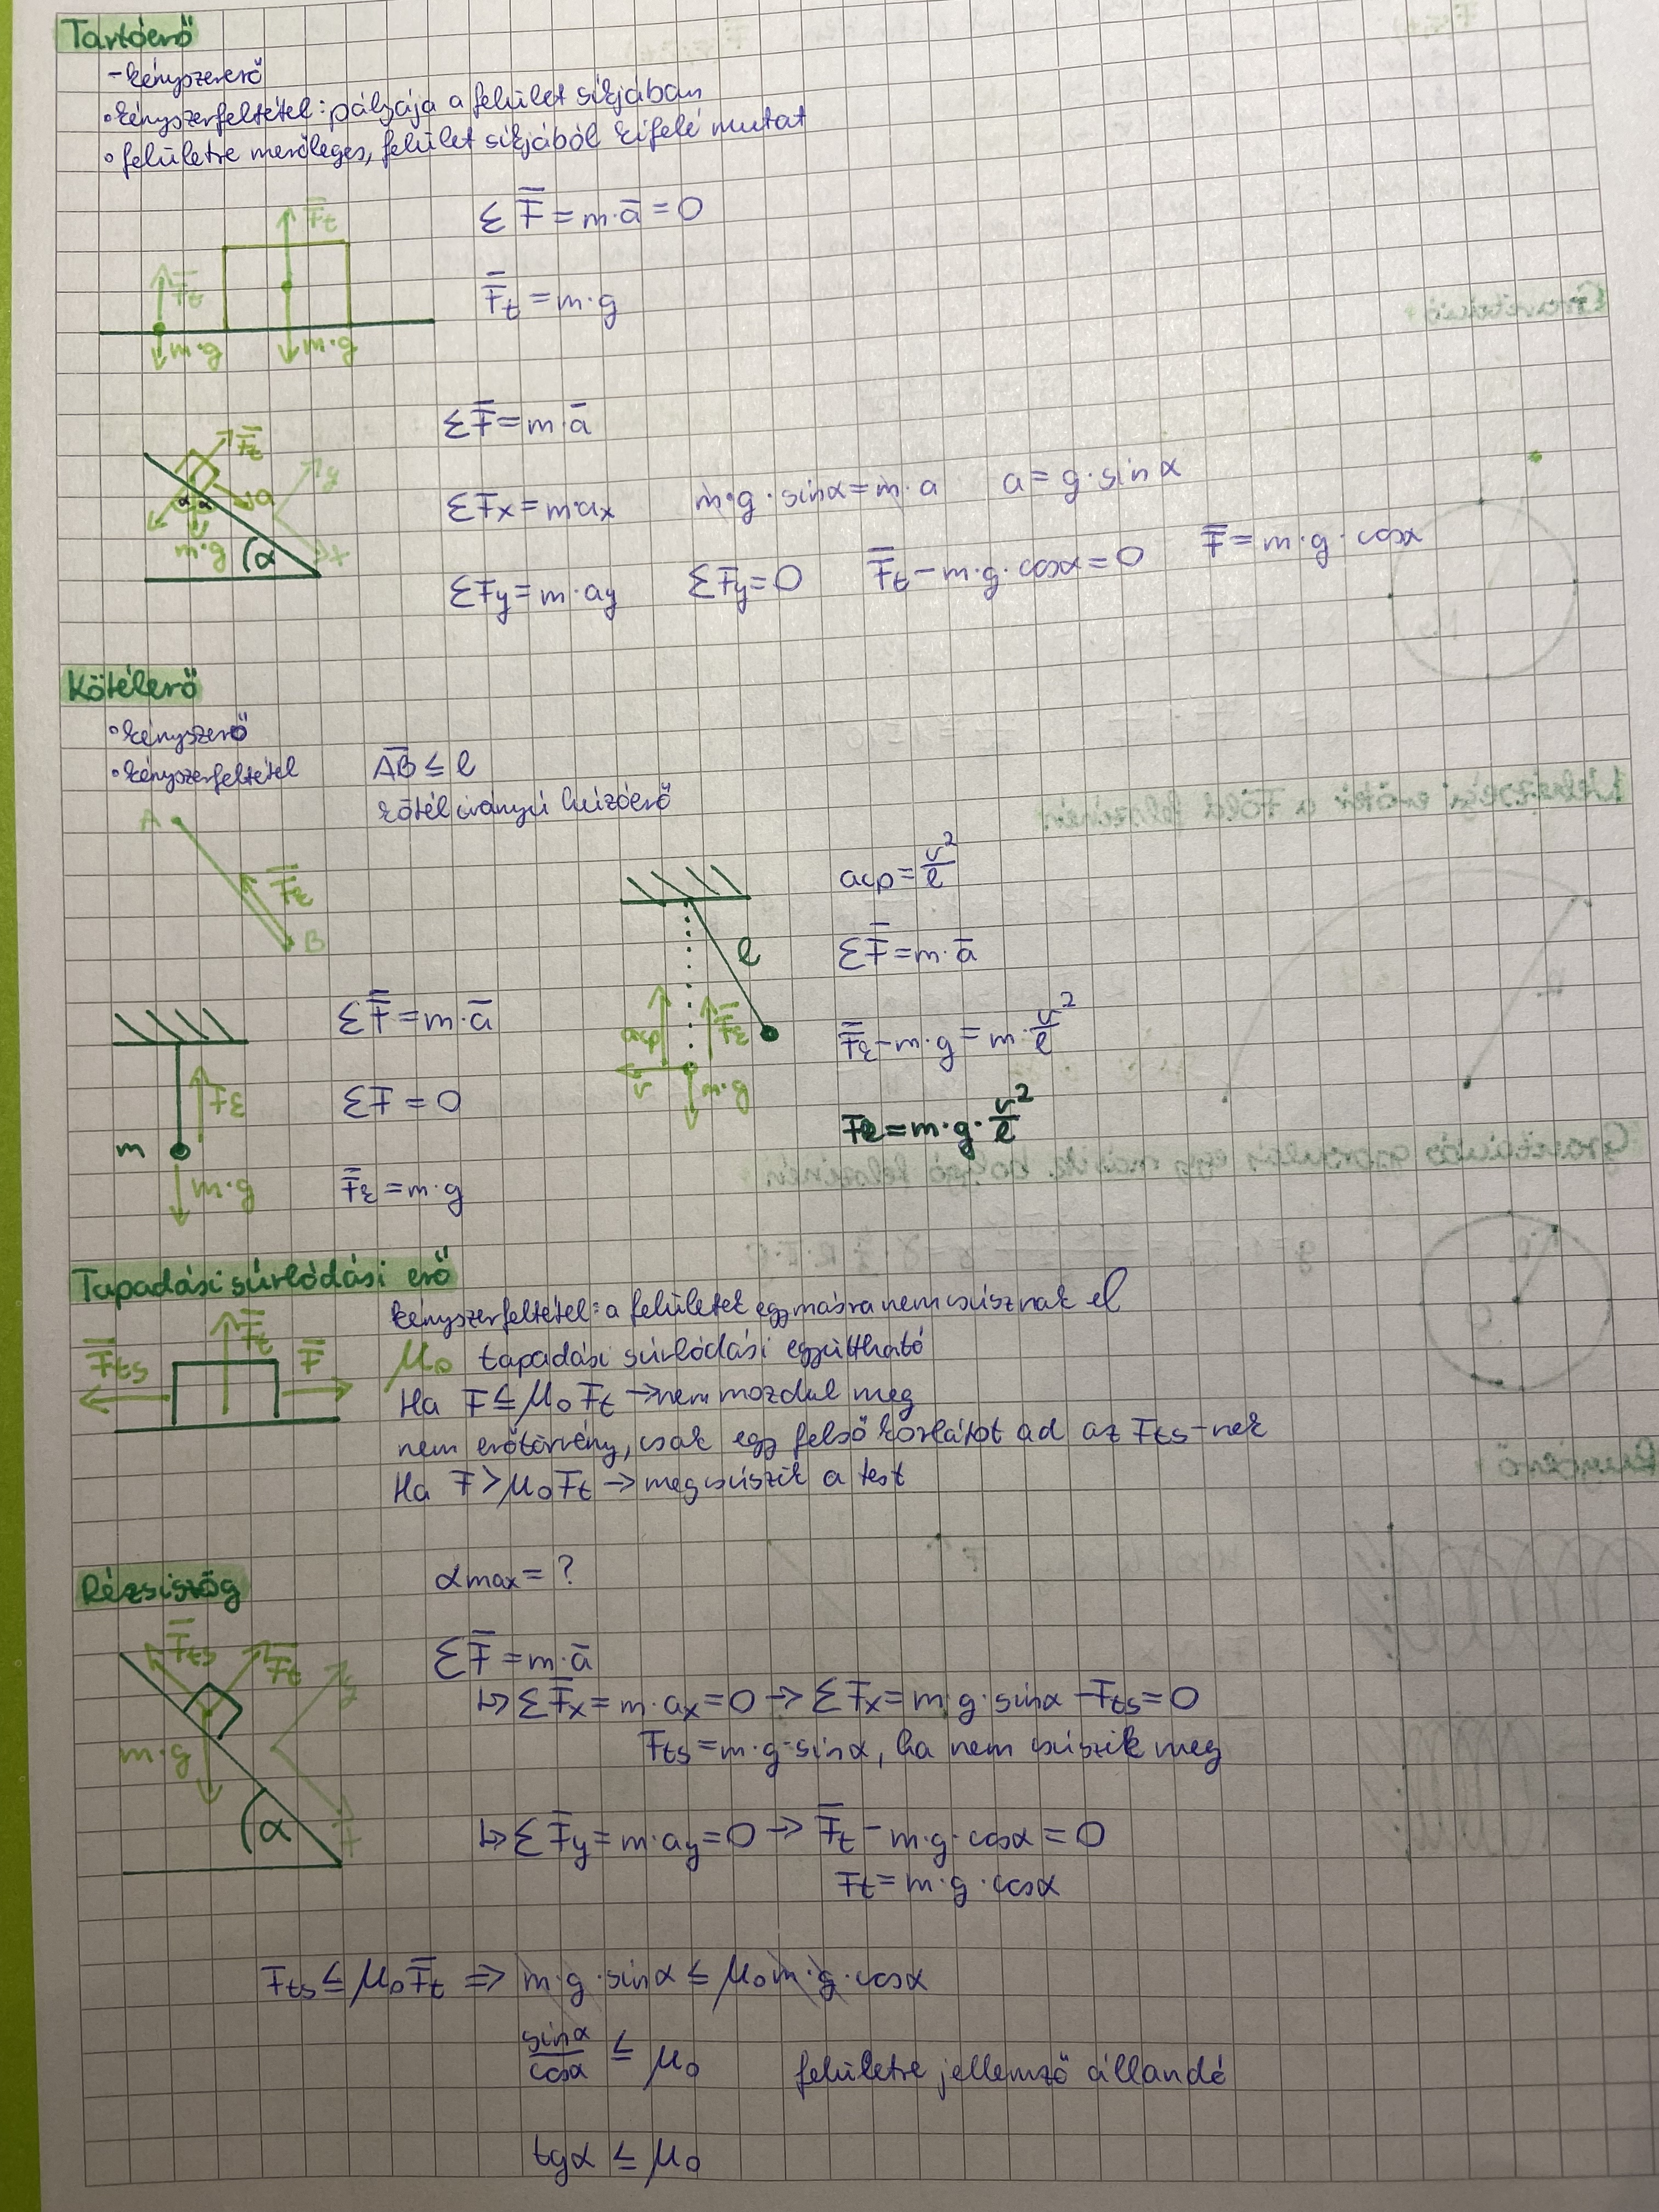 Tartóerő
- kényszererő
• kényszerfeltétel: pályája a felület síkjában
• felületre merőleges, felület síkjából kifelé mutat
F̄t
F̄t
m·g
m·g
ΣF̄ = m·ā = 0
F̄t = m·g
F̄t
y
a
α α
m·g
α
x
ΣF̄ = m·ā
ΣFx = m·ax m·g·sinα = m·a a = g·sinα
ΣFy = m·ay ΣFy = 0 F̄t - m·g·cosα = 0 F̄ = m·g·cosα
Kötélerő
• kényszerő
• kényszerfeltétel AB ≤ l
kötélirányú húzóerő
A
F̄k
B
m
Fk
m·g
ΣF̄ = m·ā
ΣF = 0
F̄k = m·g
l
acp
F̄k
v
m·g
acp = v²/l
ΣF̄ = m·ā
F̄k - m·g = m·v²/l
Fk = m·g·v²/l
Tapadási súrlódási erő
F̄ts
F̄t
F̄
kényszerfeltétel: a felületek egymásra nem csúsznak el
μ₀ tapadási súrlódási együttható
Ha F ≤ μ₀Ft → nem mozdul meg
nem erőtörvény, csak egy felső korlátot ad az Fts-nek
Ha F > μ₀Ft → megcsúszik a test
Rézsiszög
αmax = ?
F̄ts
F̄t
y
m·g
α
x
ΣF̄ = m·ā
↳ ΣF̄x = m·ax = 0 → ΣFx = m·g·sinα - Fts = 0
Fts = m·g·sinα, ha nem csúszik meg
↳ ΣF̄y = m·ay = 0 → F̄t - m·g·cosα = 0
Ft = m·g·cosα
Fts ≤ μ₀F̄t ⇒ m·g·sinα ≤ μ₀m·g·cosα
sinα/cosα ≤ μ₀ felületre jellemző állandó
tgα ≤ μ₀